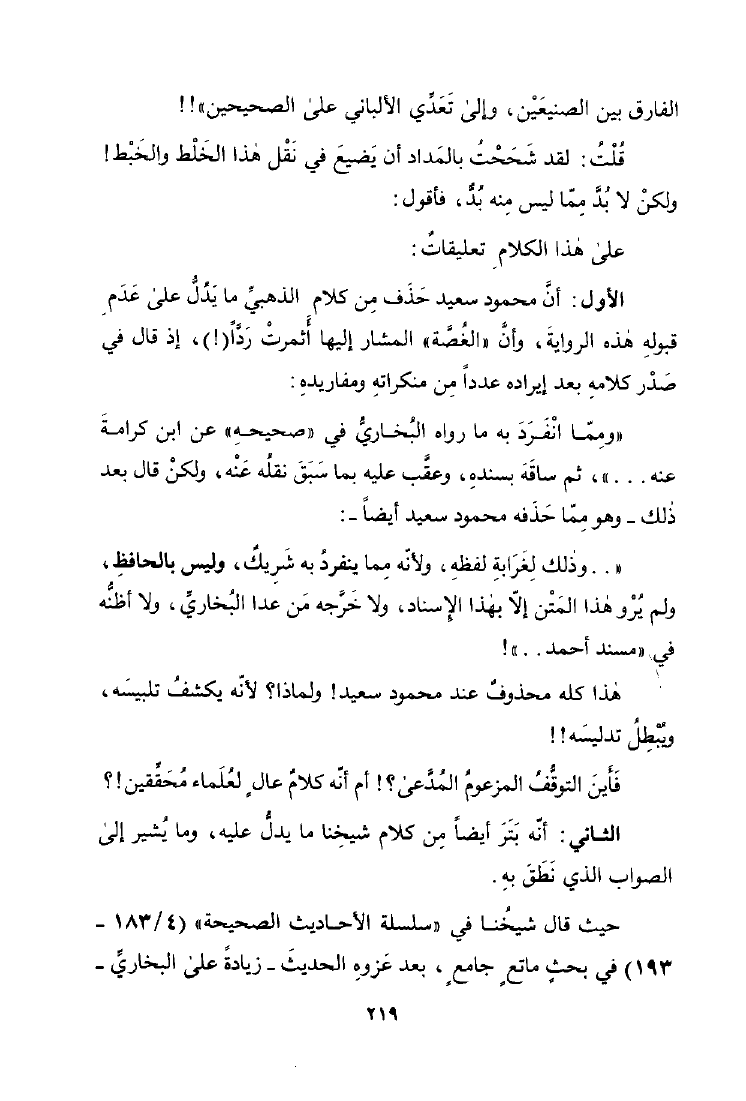 الفارق بين الصنيعَيْن، وإلىٰ تَعَدِّي الألباني علىٰ الصحيحين»!!
قُلْتُ: لقد شَحَحْتُ بالمَداد أن يَضيعَ في نَقْل هٰذا الخَلْط والخَبْط!
ولكنْ لا بُدَّ مِمّا ليس مِنه بُدٌّ، فأقول:
علىٰ هٰذا الكلامِ تعليقاتٌ:
الأول: أنَّ محمود سعيد حَذَف مِن كلام الذهبيِّ ما يَدُلُّ علىٰ عَدَمِ
قبولهِ هٰذه الروايةَ، وأنَّ «الغُصَّة» المشار إليها أَثمرتْ رَدّاً(!)، إذ قال في
صَدْر كلامهِ بعد إيراده عدداً مِن منكراتهِ ومفاريدهِ:
«ومِمّا انْفَرَدَ به ما رواه البُخاريُّ في «صحيحهِ» عن ابن كرامةَ
عنه...»، ثم ساقَهَ بسندهِ، وعقَّب عليه بما سَبَقَ نقلُه عَنْه، ولكنْ قال بعد
ذٰلك ـ وهو مِمّا حَذَفه محمود سعيد أيضاً ـ:
«..وذٰلك لِغَرَابةِ لفظهِ، ولأنّه مِما ينفردُ به شَريكٌ، وليس بالحافظِ،
ولم يُرْو هٰذا المَتْن إلاّ بهٰذا الإِسناد، ولا خَرَّجه مَن عدا البُخاريِّ، ولا أظنُّه
في «مسند أحمد..»!
هٰذا كله محذوفٌ عند محمود سعيد! ولماذا؟ لأنّه يكشفُ تلبيسَه،
ويُبْطِلُ تدليسَه!!
فَأَينَ التوقُّفُ المزعومُ المُدَّعىٰ؟! أم أنّه كلامٌ عالٍ لعُلَماء مُحَقِّقين!؟
الثاني: أنّه بَتَرَ أيضاً مِن كلام شيخِنا ما يدلُّ عليه، وما يُشير إلىٰ
الصواب الذي نَطَقَ بهِ.
حيث قال شيخُنا في «سلسلة الأحاديث الصحيحة» (٤/١٨٣ ـ
١٩٣) في بحثٍ ماتعٍ جامعٍ، بعد عَزوهِ الحديثَ ـ زيادةً علىٰ البخاريِّ ـ
٢١٩